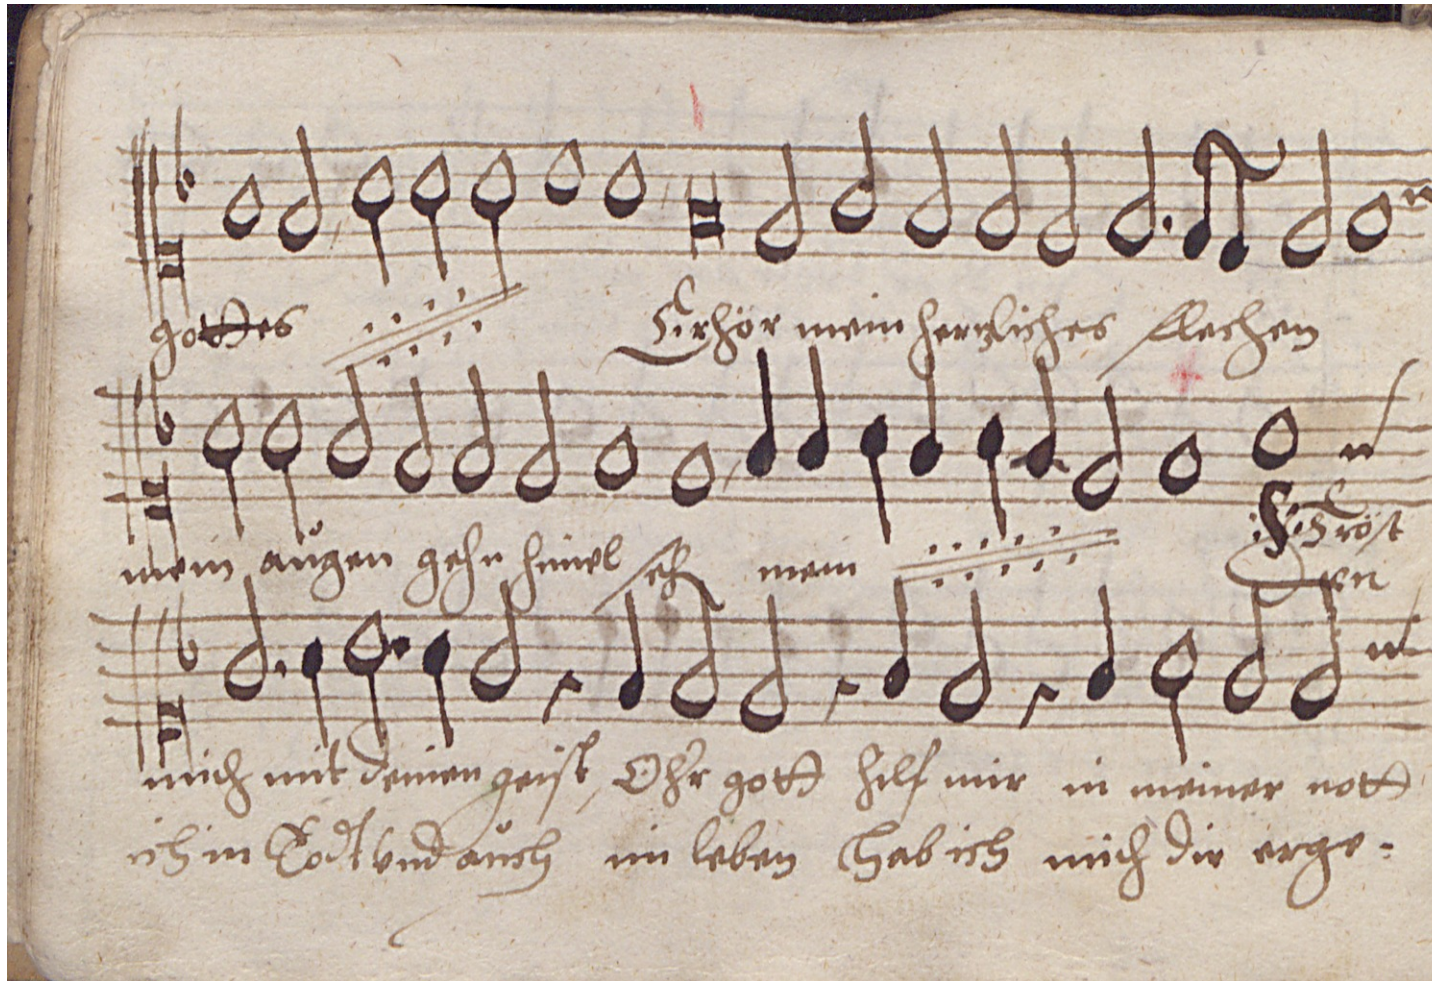 gottes Erhör mein hertzliches flechen
mein augen gehn himel mein Tröst
Den
mich mit deinen geist, O hr gott hilf mir in meiner nott
ich im Todt und auch im leben Hab ich mich dir erge-